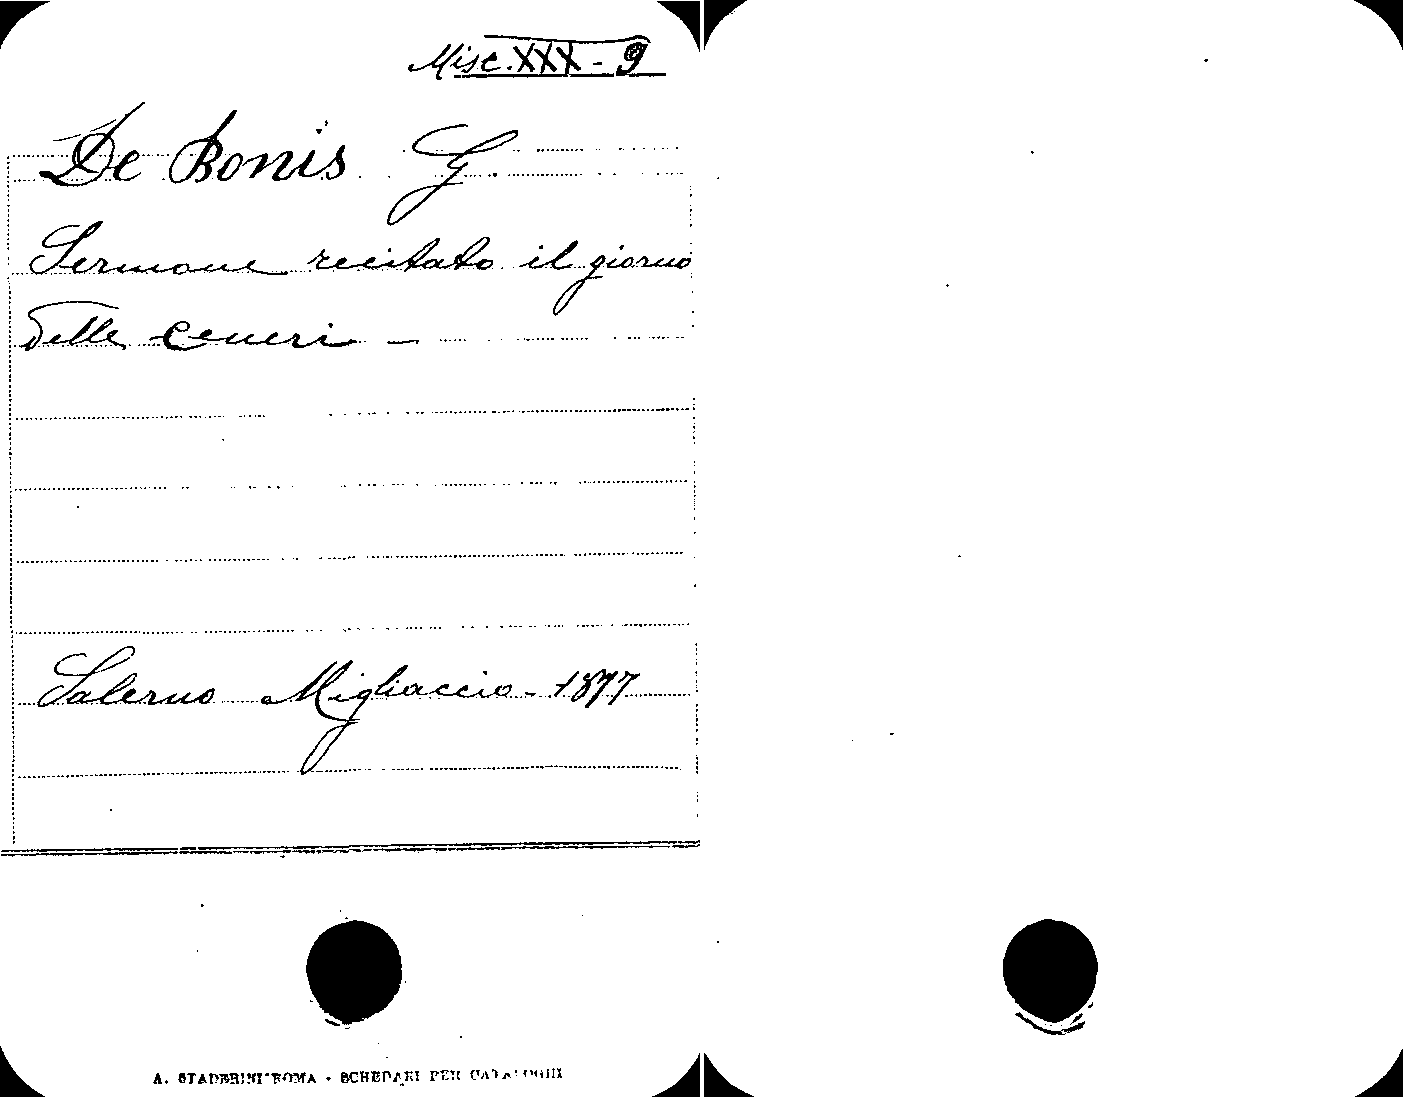 Misc. XXX - 9
De Bonis G.
Sermone recitato il giorno
delle Ceneri -
Salerno Migliaccio - 1877
A. STADERINI ROMA - SCHEDARI PER CATALOGHI